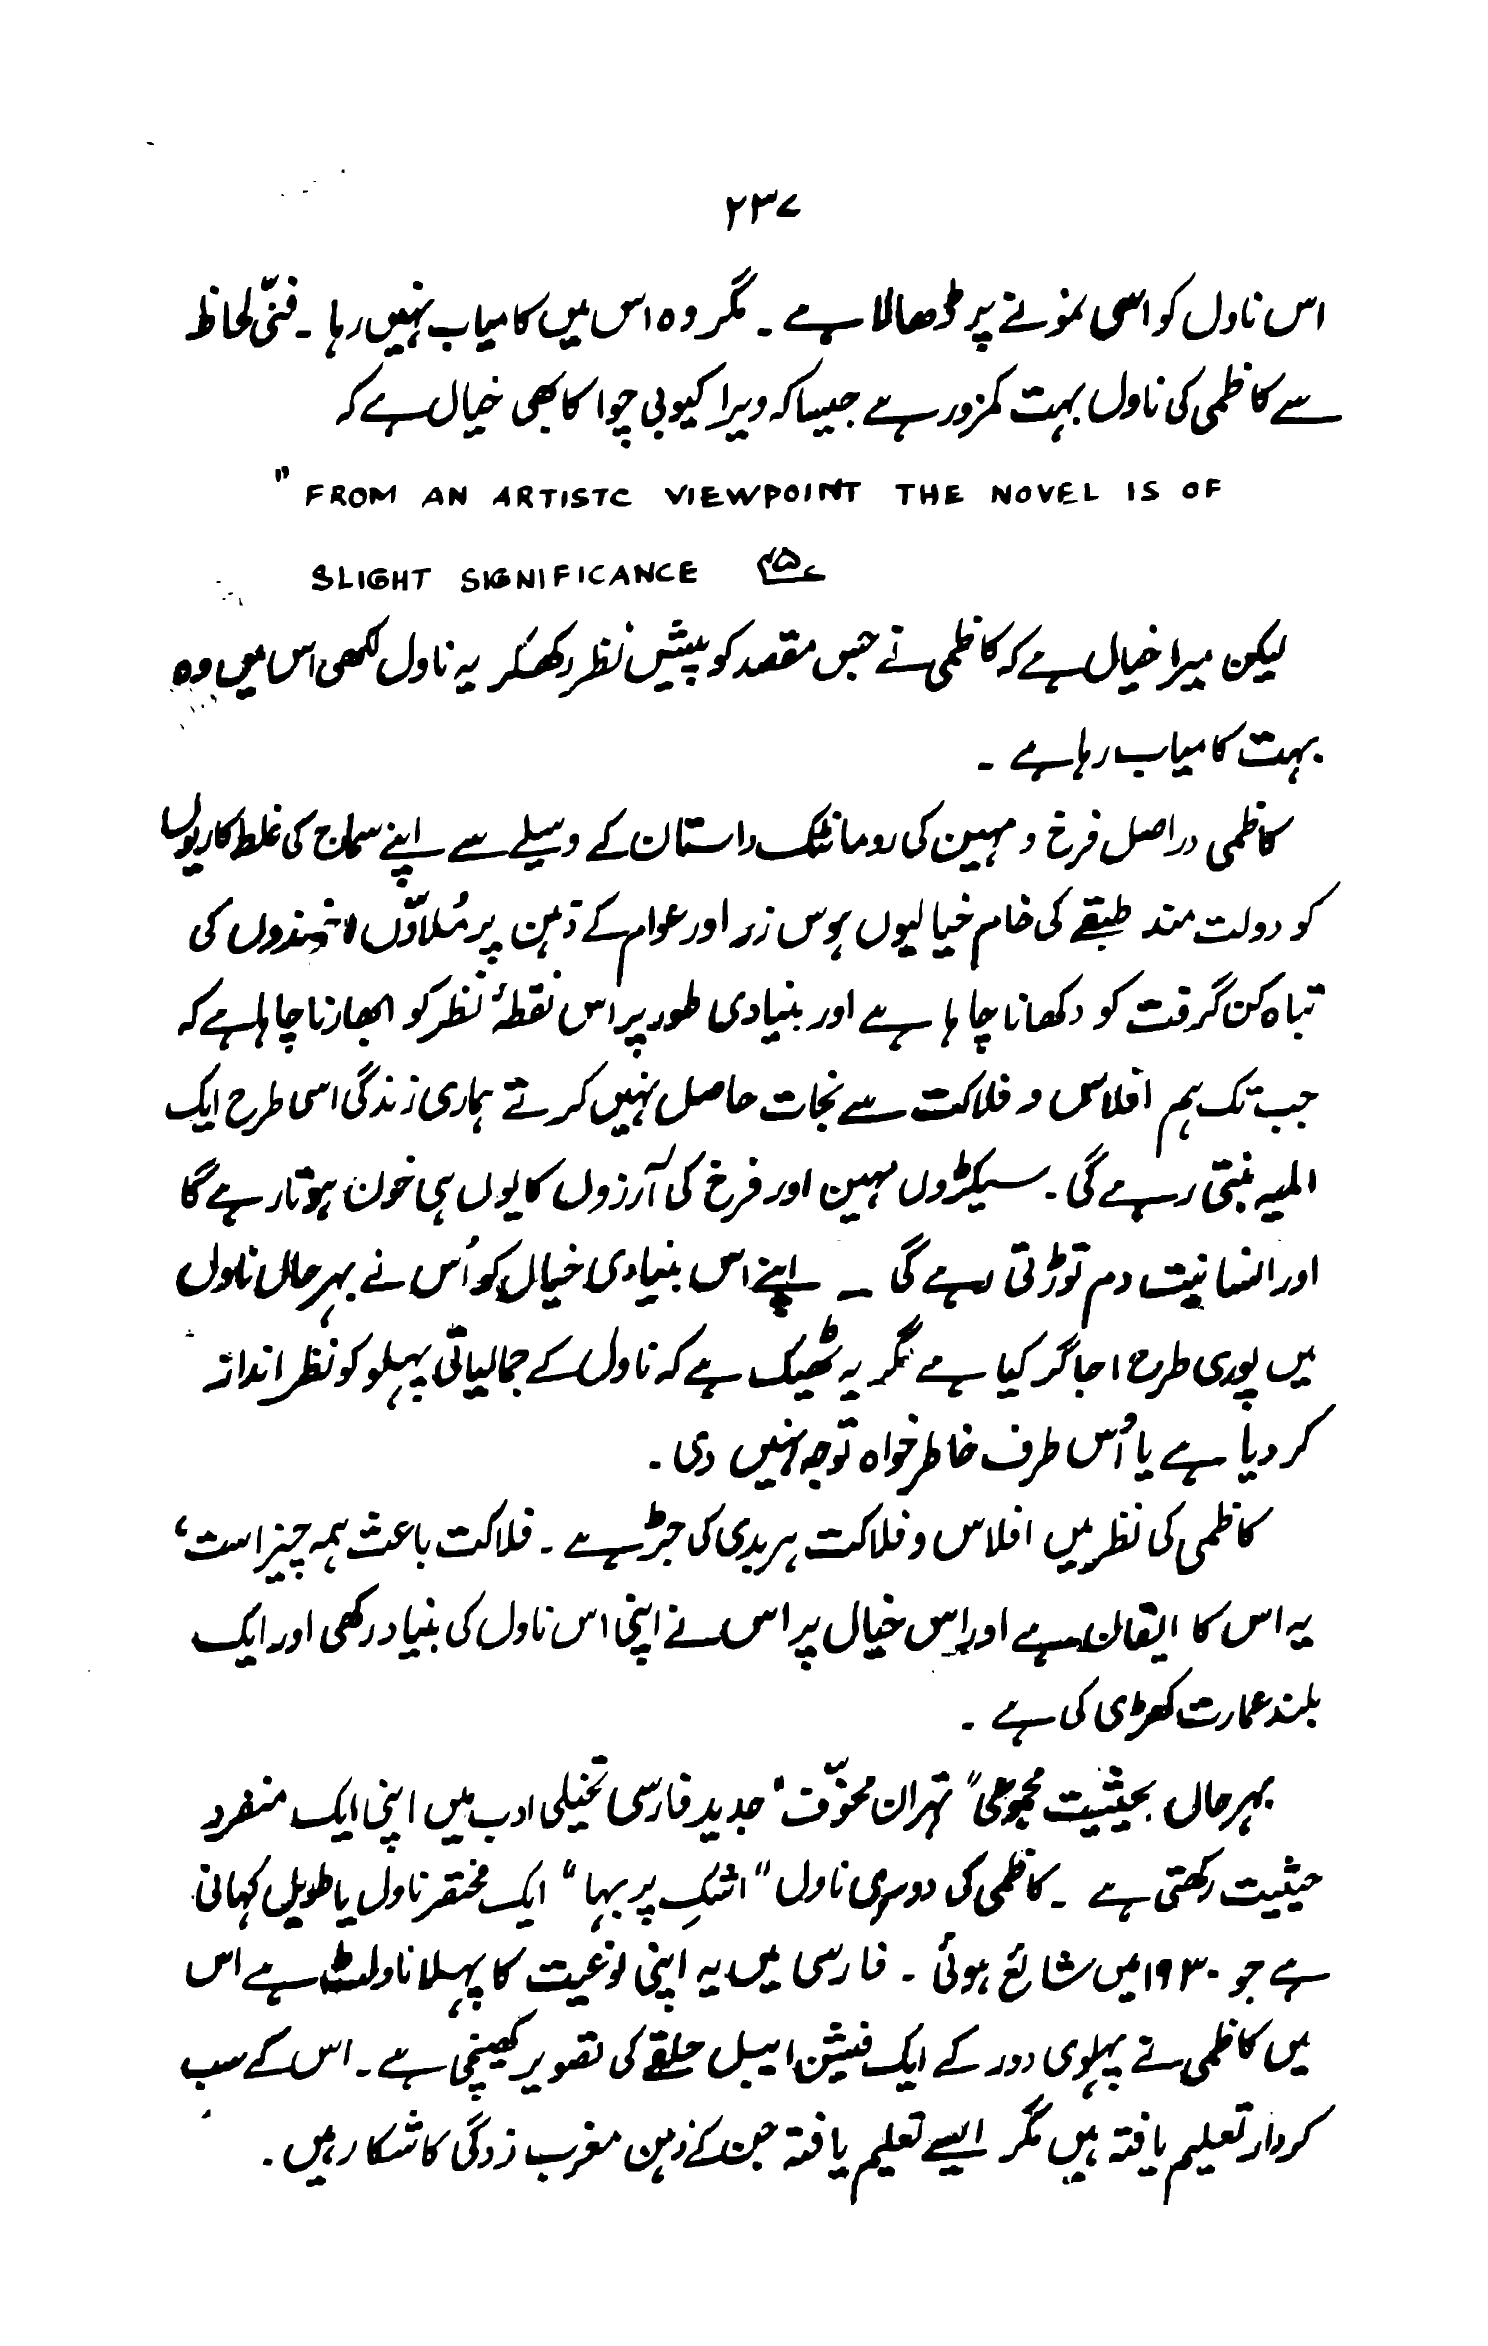 ۲۳۷
اس ناول کو اسی نمونے پر ڈھالا ہے ۔ مگر وہ اس میں کامیاب نہیں رہا ۔ فنّی لحاظ
سے کاظمی کی ناول بہت کمزور ہے جیسا کہ ویرا کیوبی چوا کا بھی خیال ہے کہ
" FROM AN ARTISTC VIEWPOINT THE NOVEL IS OF
SLIGHT SIGNIFICANCE
لیکن میرا خیال ہے کہ کاظمی نے جس مقصد کو پیش نظر رکھکر یہ ناول لکھی اس میں وہ
بہت کامیاب رہا ہے ۔
کاظمی دراصل فرخ و مہین کی رومانٹک داستان کے وسیلے سے اپنے سماج کی غلط کاریوں
کو دولت مند طبقے کی خام خیالیوں ہوس زر اور عوام کے ذہن پر مُلاؤں کی
تباہ کن گرفت کو دکھانا چاہا ہے اور بنیادی طور پر اس نقطۂ نظر کو ابھارنا چاہا ہے کہ
جب تک ہم افلاس و فلاکت سے نجات حاصل نہیں کرتے ہماری زندگی اسی طرح ایک
المیہ بنتی رہے گی ۔ سیکڑوں مہین اور فرخ کی آرزوں کا یوں ہی خون ہوتا رہے گا
اور انسانیت دم توڑتی رہے گی ـ اپنے اس بنیادی خیال کو اُس نے بہرحال ناول
میں پوری طرح اجاگر کیا ہے مگر یہ ٹھیک ہے کہ ناول کے جمالیاتی پہلو کو نظر انداز
کر دیا ہے یا اُس طرف خاطر خواہ توجہ نہیں دی ۔
کاظمی کی نظر میں افلاس و فلاکت ہر بدی کی جڑ ہے ۔ فلاکت باعث ہمہ چیز است،
یہ اس کا ایقان ہے اور اِس خیال پر اس نے اپنی اس ناول کی بنیاد رکھی اور ایک
بلند عمارت کھڑی کی ہے ۔
بہرحال بحیثیت مجموعی "تہران مخوّف" جدید فارسی تخیلی ادب میں اپنی ایک منفرد
حیثیت رکھتی ہے ۔ کاظمی کی دوسری ناول "اشکِ پر بہا" ایک مختصر ناول یا طویل کہانی
ہے جو ۱۹۳۰ میں شائع ہوئی ۔ فارسی میں یہ اپنی نوعیت کا پہلا ناولٹ ہے اس
میں کاظمی نے پہلوی دور کے ایک فیشن ایبل حلقے کی تصویر کھینچی ہے ۔ اس کے سب
کردار تعلیم یافتہ ہیں مگر ایسے تعلیم یافتہ جن کے ذہن مغرب زدگی کا شکار ہیں ۔